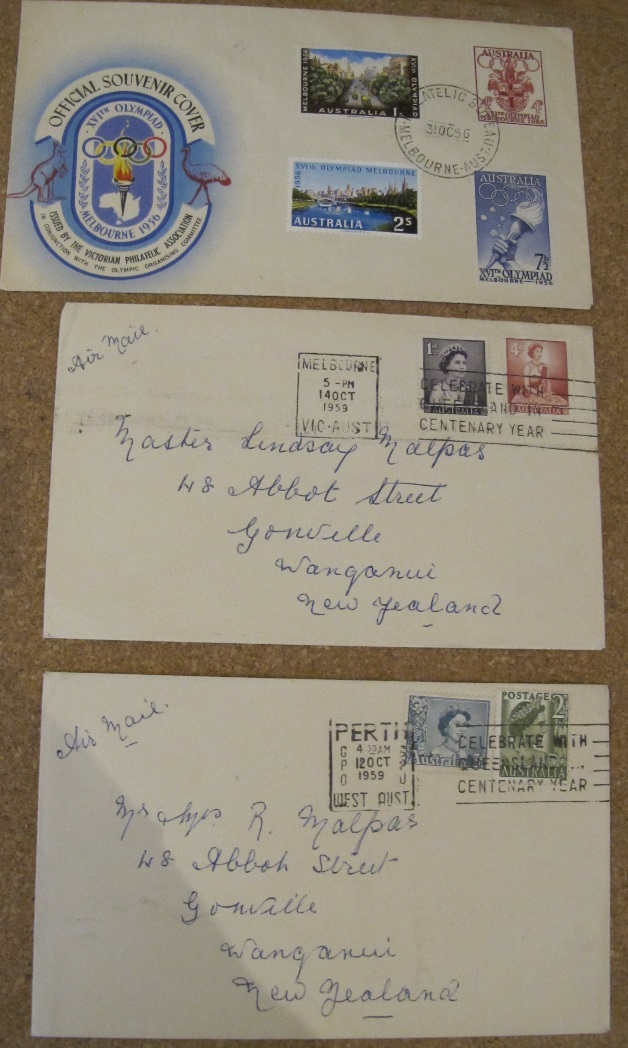 OFFICIAL SOUVENIR COVER
XVITH OLYMPIAD
MELBOURNE 1956
ISSUED BY THE VICTORIAN PHILATELIC ASSOCIATION
IN CONJUNCTION WITH THE OLYMPIC ORGANISING COMMITTEE
MELBOURNE 1956
XVITH OLYMPIAD
AUSTRALIA 1
AUSTRALIA
XVITH OLYMPIAD
MELBOURNE 1956
31OC56
MELBOURNE-AUST
XVITH OLYMPIAD MELBOURNE
1956
AUSTRALIA 2S
AUSTRALIA
7½D
XVITH OLYMPIAD
MELBOURNE 1956
Air Mail.
MELBOURNE
5-PM
14OCT
1959
VIC-AUST
1D
AUSTRALIA
4D
AUSTRALIA
CELEBRATE WITH
CENTENARY YEAR
Master Lindsay Malpas
48 Abbot Street
Gonville
Wanganui
New Zealand
Air Mail.
PERTH
GPO
12OCT
1959
WEST AUST
Australia
POSTAGE 2
AUSTRALIA
CELEBRATE WITH
QUEENSLAND
CENTENARY YEAR
R. Malpas
48 Abbot Street
Gonville
Wanganui
New Zealand